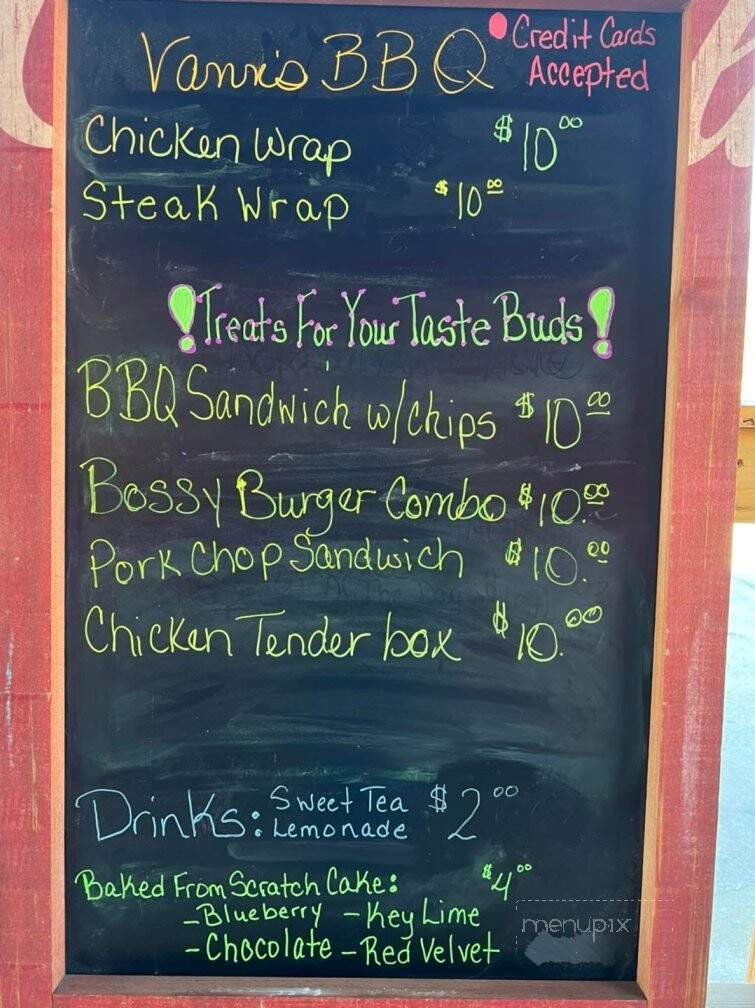 Vann's BBQ
• Credit Cards Accepted
Chicken Wrap $10.00
Steak Wrap $10.00
!Treats For Your Taste Buds!
BBQ Sandwich w/chips $10.00
Bossy Burger Combo $10.00
Pork Chop Sandwich $10.00
Chicken Tender box $10.00
Drinks: Sweet Tea $2.00
Lemonade
Baked From Scratch Cake: $4.00
-Blueberry -Key Lime
-Chocolate -Red Velvet
menupix